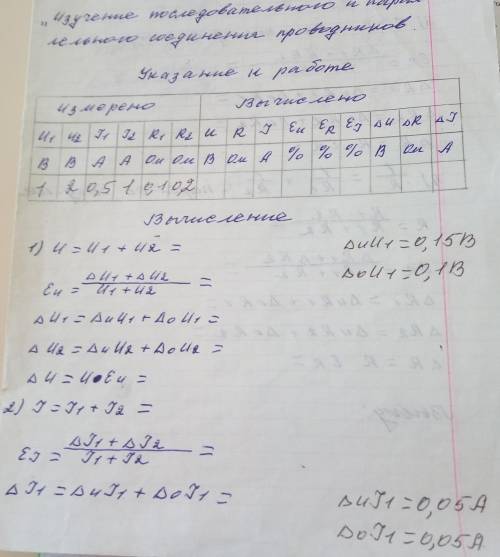 „Изучение последовательного и парал
лельного соединения проводников.
Указание к работе
Измерено Вычислено
U1 U2 I1 I2 R1 R2 U R I εu εR εI ΔU ΔR ΔI
В В А А Ом Ом В Ом А % % % В Ом А
1 2 0,5 1 0,1 0,2
Вычисление
1) U = U1 + U2 =
ΔиU1 = 0,15В
εu = ΔU1 + ΔU2 / U1 + U2 =
ΔоU1 = 0,1В
ΔU1 = ΔиU1 + ΔоU1 =
ΔU2 = ΔиU2 + ΔоU2 =
ΔU = U•εu =
2) I = I1 + I2 =
εI = ΔI1 + ΔI2 / I1 + I2 =
ΔI1 = ΔиI1 + ΔоI1 =
ΔиI1 = 0,05А
ΔоI1 = 0,05А